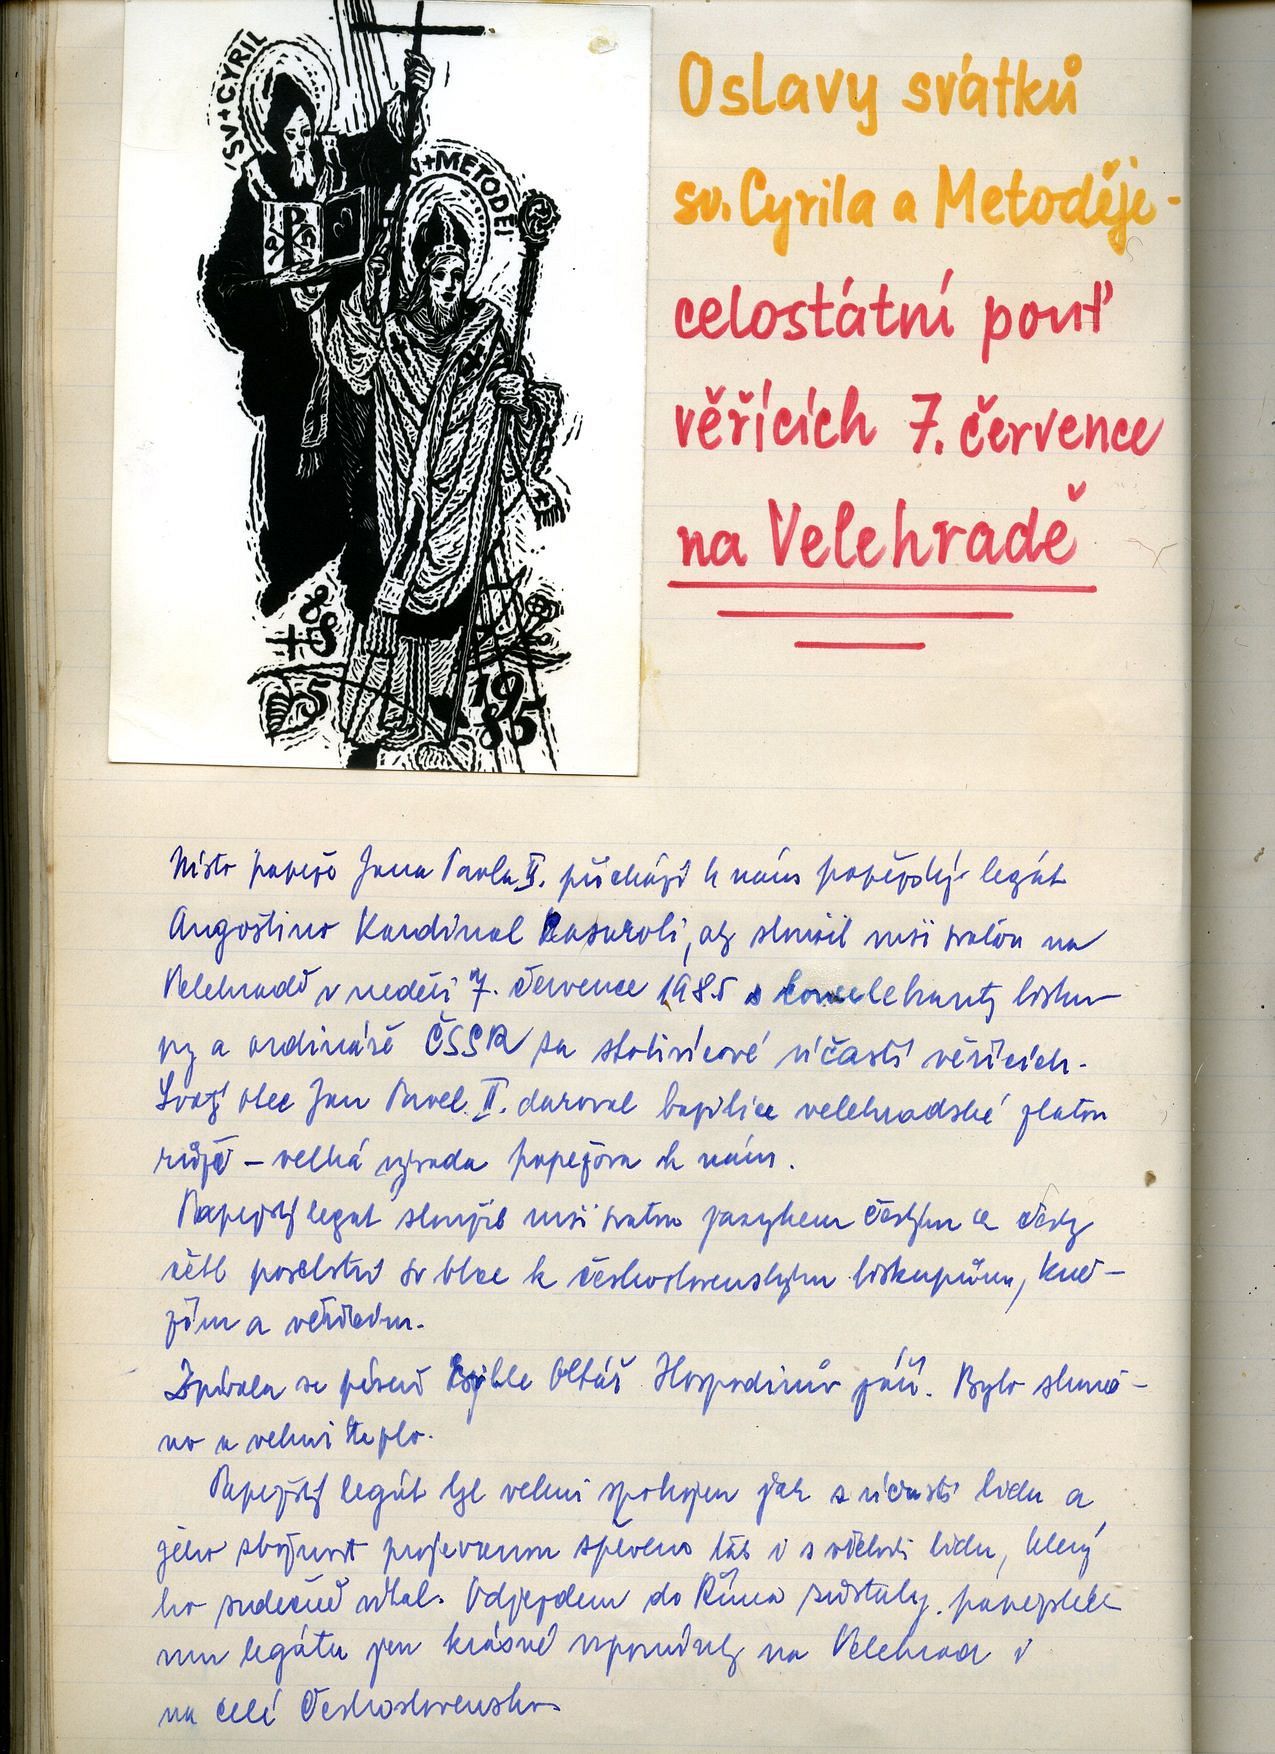 SV+CYRIL
SV+METODĚJ
+ 885
1985
Oslavy svátků
sv. Cyrila a Metoděje -
celostátní pouť
věřících 7. července
na Velehradě
Místo papeže Jana Pavla II. přichází k nám papežský legát
Angoštino Kardinal Kasaroli, aby sloužil mši svatou na
Velehradě v neděli 7. července 1985 s koncelebranty bisku-
py a ordináři ČSSR za stotisícové účasti věřících.
Svatý otec Jan Pavel II. daroval bazilice velehradské zlatou
růži – velká pozornost papežova k nám.
Papežský legát sloužil mši svatou jazykem českým a česky
četl poselství sv otce k československým biskupům, kně-
žím a věřícím.
Zpívala se píseň Ejhle Oltář Hospodinův září. Bylo sluneč-
no a velmi teplo.
Papežský legát byl velmi spokojen jak s účastí lidu a
jeho zbožnost projevanou zpěvem tak i s vřelosti lidu, který
ho srdečně vítal. Odjezdem do Říma zůstaly papežské-
mu legátu jen krásné vzpomínky na Velehrad i
na celé Československo.